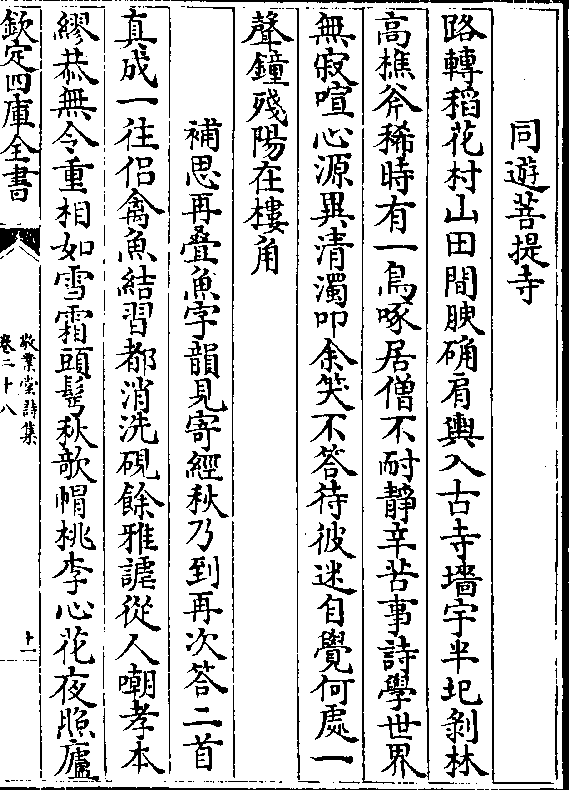 同遊菩提寺
路轉稻花村山田間腴确肩輿入古寺墻宇半圮剝林
高樵斧稀時有一鳥啄居僧不耐靜辛苦事詩學世界
無寂喧心源異清濁叩余笑不答待彼迷自覺何處一
聲鐘殘陽在樓角
補思再疊魚字韻見寄經秋乃到再次答二首
真成一往侣禽魚結習都消洗硯餘雅謔從人嘲孝本
繆恭無令重相如雪霜頭髩秋欹帽桃李心花夜照廬
欽定四庫全書
敬業堂詩集
卷二十八
十一